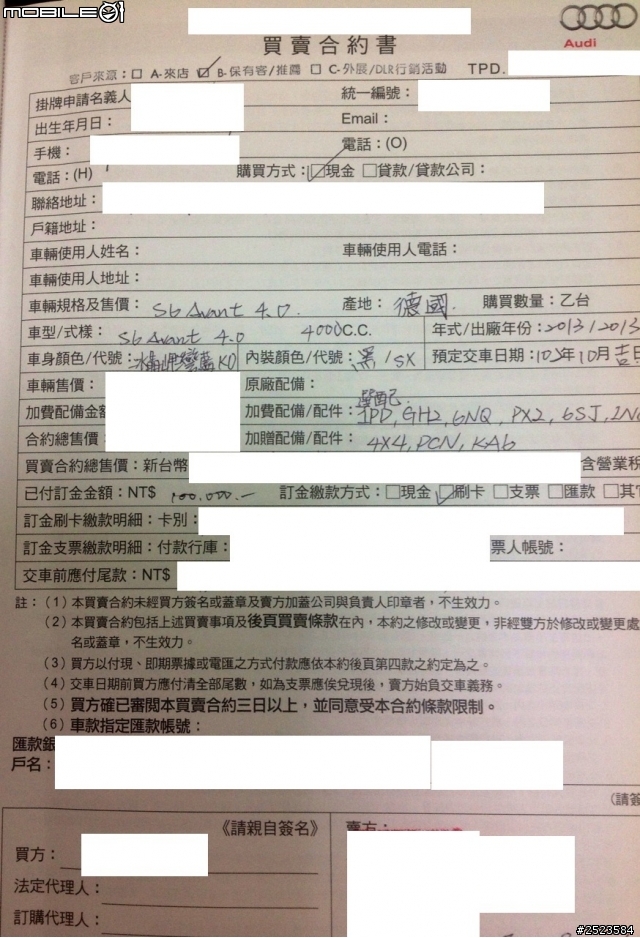 MOBILE01
買賣合約書
Audi
客戶來源：□ A-來店 ☑ B-保有客/推薦 □ C-外展/DLR行銷活動 TPD.
掛牌申請名義人 統一編號：
出生年月日： Email：
手機： 電話：(O)
電話：(H) 購買方式：☑現金 □貸款/貸款公司：
聯絡地址：
戶籍地址：
車輛使用人姓名： 車輛使用人電話：
車輛使用人地址：
車輛規格及售價： S6 Avant 4.0. 產地： 德國. 購買數量：乙台
車型/式樣： S6 Avant 4.0 4000C.C. 年式/出廠年份：2013/2013
車身顏色/代號： 內裝顏色/代號：黑/SX 預定交車日期：102年10月吉日
車輛售價： 原廠配備：
加費配備金額 加費配備/配件： 1PD, GH2, 6NQ, PX2, 6SJ, 2N
合約總售價： 加贈配備/配件： 4X4, PCN, KA6
買賣合約總售價：新台幣 含營業稅
已付訂金金額：NT$ 100,000.— 訂金繳款方式：□現金 ☑刷卡 □支票 □匯款 □其
訂金刷卡繳款明細：卡別：
訂金支票繳款明細：付款行庫： 票人帳號：
交車前應付尾款：NT$
註：（1）本買賣合約未經買方簽名或蓋章及賣方加蓋公司與負責人印章者，不生效力。
（2）本買賣合約包括上述買賣事項及後頁買賣條款在內，本約之修改或變更，非經雙方於修改或變更處
名或蓋章，不生效力。
（3）買方以付現、即期票據或電匯之方式付款應依本約後頁第四款之約定為之。
（4）交車日期前買方應付清全部尾數，如為支票應俟兌現後，賣方始負交車義務。
（5）買方確已審閱本買賣合約三日以上，並同意受本合約條款限制。
（6）車款指定匯款帳號：
匯款銀
戶名：
（請簽
《請親自簽名》 賣方：
買方：
法定代理人：
訂購代理人：
#2523584